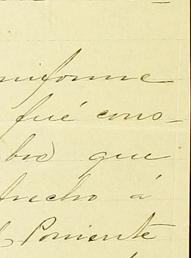 niforme
fué cons-
bre que
trecho á
l Poniente